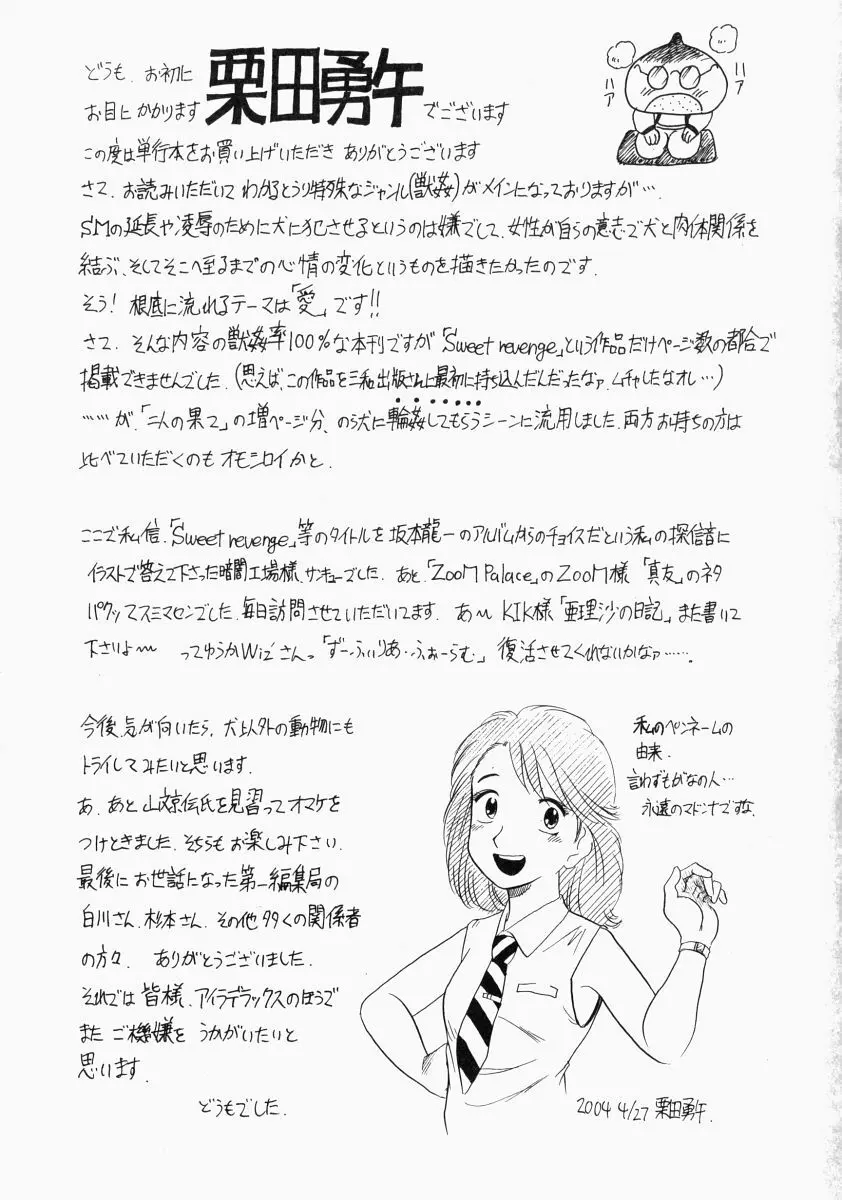 どうも、お初に
お目にかかります 栗田勇午 でございます
ハア
ハア
この度は単行本をお買い上げいただき ありがとうございます
さて、お読みいただいて わかるとうり特殊なジャンル(獣姦)がメインになっておりますが…、
SMの延長や凌辱のために犬に犯させるというのは嫌でして、女性が自らの意志で犬と肉体関係を
結ぶ、そしてそこへ至るまでの心情の変化というものを描きたかったのです.
そう! 根底に流れるテーマは「愛」です!!
さて、そんな内容の獣姦率100%な本刊ですが「Sweet revenge」という作品だけページ数の都合で
掲載できませんでした.(思えば、この作品を三和出版さんに最初に持ち込んだんだったなァ.ムチャしたなオレ…)
……が、「二人の果て」の増ページ分、のら犬に輪姦してもらうシーンに流用しました.両方お持ちの方は
比べていただくのもオモシロイかと.
ここで私信.「Sweet revenge」等のタイトルを坂本龍一のアルバムからのチョイスだという私の探信音に
イラストで答えて下さった暗闇工場様、サンキューでした. あと「ZooM Palace」のZooM様 「真友」のネタ
パクッてスミマセンでした.毎日訪問させていただいてます. あ〜 KIK様「亜理沙の日記」また書いて
下さいよ〜 ってゆうかWiz'さんっ「ずーふぃりあ・ふぉーらむ」復活させてくれないかなァ…….
今後、気が向いたら、犬以外の動物にも
トライしてみたいと思います.
あ、あと 山文京伝氏を見習ってオマケを
つけときました.そちらもお楽しみ下さい.
最後に お世話になった第一編集局の
白川さん、杉本さん、その他多くの関係者
の方々、 ありがとうございました.
それでは 皆様、アイラデラックスのほうで
また ご機嫌を うかがいたいと
思います.
どうもでした.
私のペンネームの
由来.
言わずもがなの人…
永遠のマドンナですな.
2004 4/27 栗田勇午.